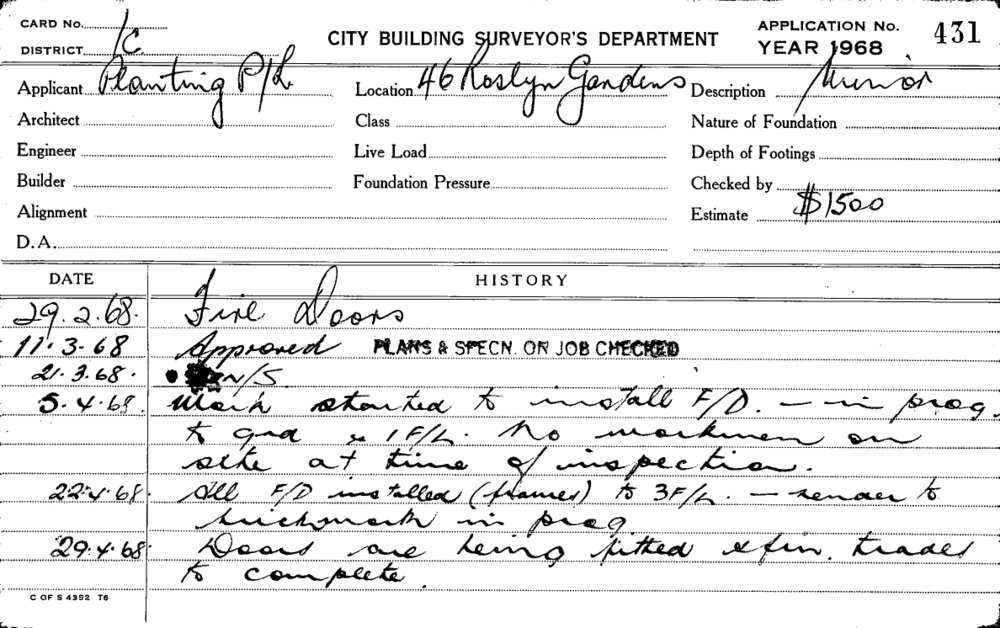 CARD No.
DISTRICT 1C
CITY BUILDING SURVEYOR'S DEPARTMENT
APPLICATION No. 431
YEAR 1968
Applicant Planting P/L
Location 46 Roslyn Gardens
Description Minor
Architect
Class
Nature of Foundation
Engineer
Live Load
Depth of Footings
Builder
Foundation Pressure
Checked by
Alignment
Estimate $1500
D.A.
DATE HISTORY
29.2.68. Fire Doors
11.3.68 Approved PLANS & SPECN. ON JOB CHECKED
21.3.68. N/S.
5.4.68. Work started to install F/D. — in prog.
to grd & 1F/L. No workmen on
site at time of inspection.
22.4.68. All F/D installed (frames) to 3F/L. — render to
brickwork in prog
29.4.68. Doors are being fitted & fin. trades
to complete.
C OF S 4352 T6